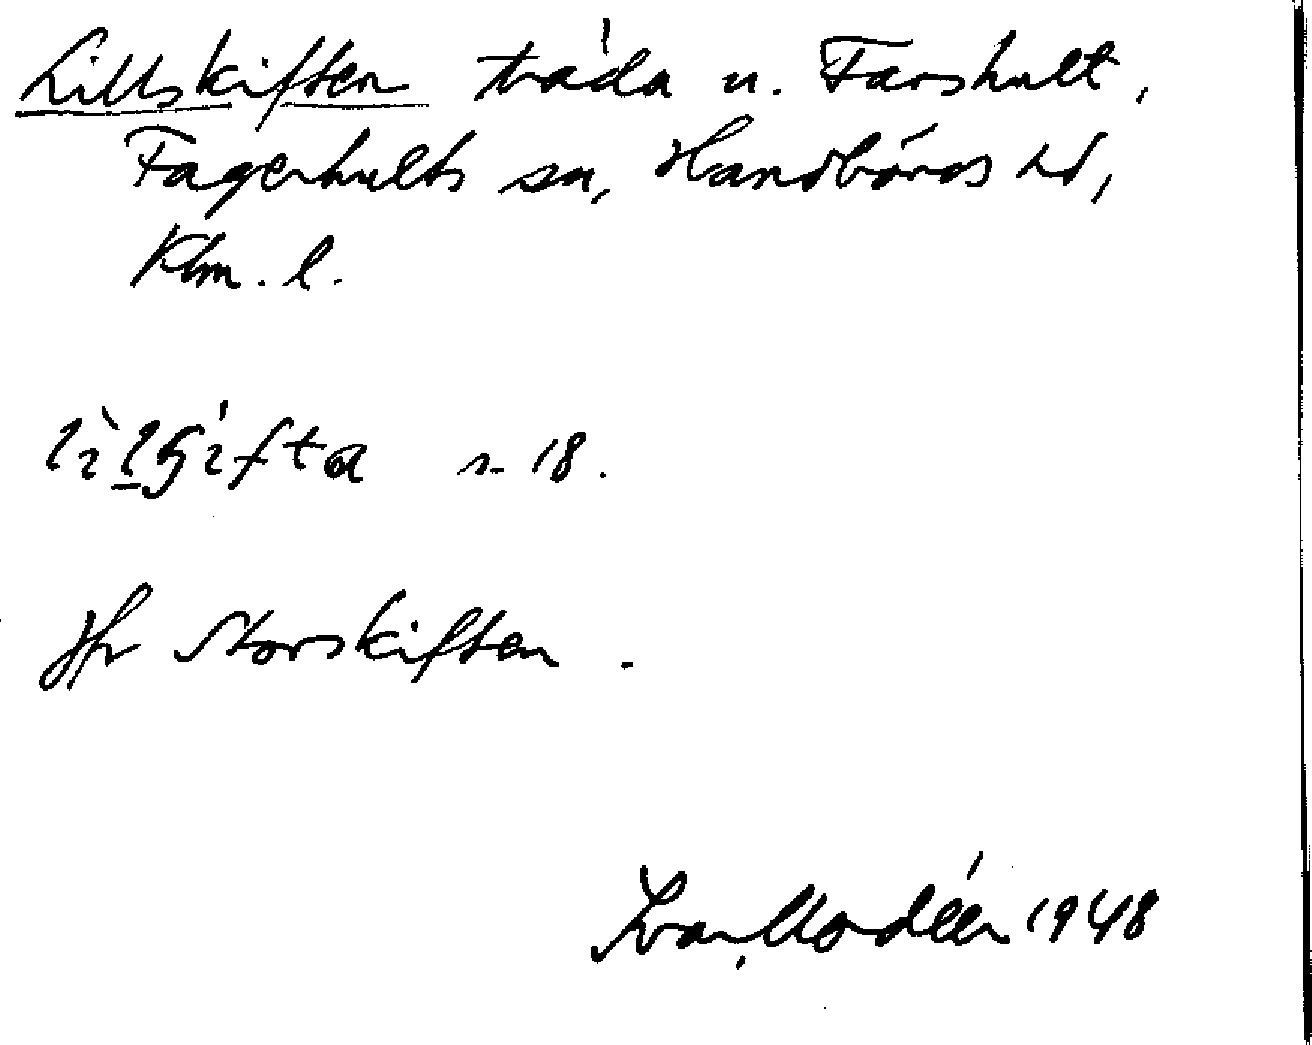 Lillskiften tråda u. Farshult,
Fagerhults sn, Handbörds hd,
Klm. l.
s. 18.
Jfr Storskiften.
Ivar Modéer 1948